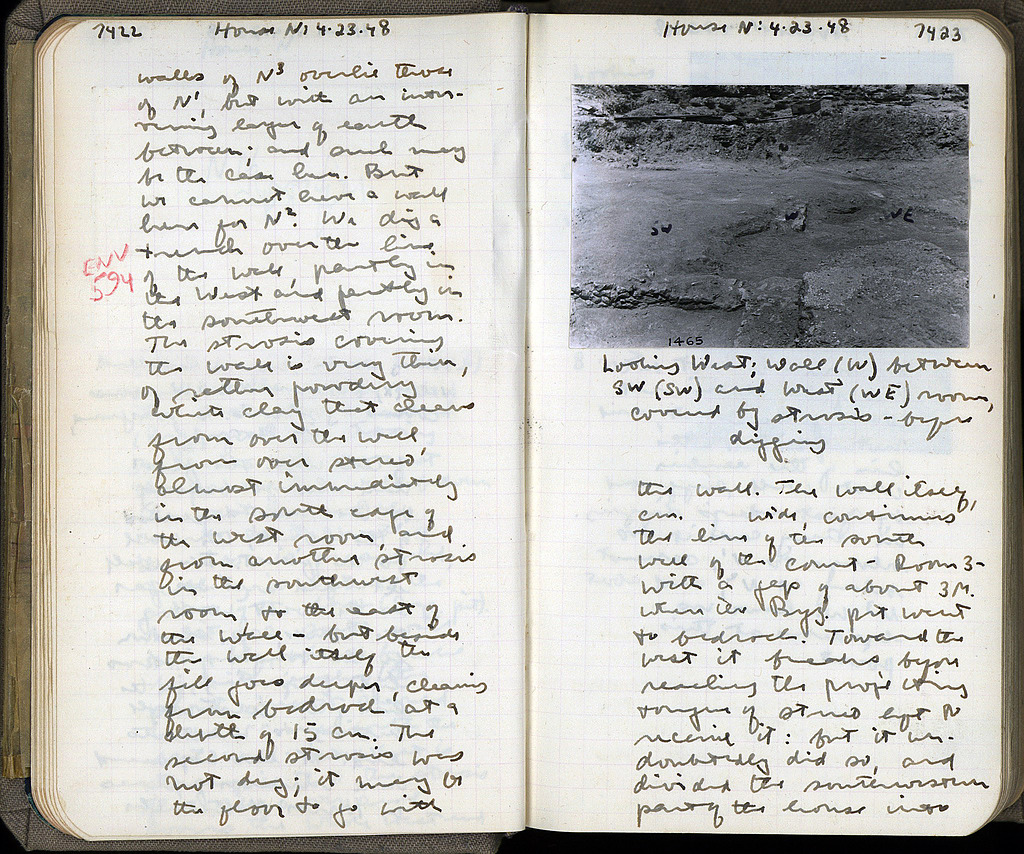 7422 House N: 4.23.48
walls of N³ overlie those
of N¹, but with an inter-
vening layer of earth
between; and such may
be the case here. But
we cannot have a wall
here for N². We dig a
trench over the line
of the wall, partly in
the West and partly in
the southwest room.
The strosis covering
the wall is very thin,
of rather powdery
white clay that cleans
from over the wall
from over stereo,
almost immediately
in the south edge of
the west room, and
from another strosis
in the southwest
room to the east of
the wall – but beside
the wall itself the
fill goes deeper, cleaning
from bedrock at a
depth of 15 cm. The
second strosis was
not dug; it may be
the floor to go with
ENV
594
House N: 4.23.48 7423
SW W WE
1465
Looking West; Wall (W) between
SW (SW) and West (WE) rooms,
covered by strosis – before
digging
the wall. The wall itself,
cm. wide, continues
the line of the south
wall of the court – Room 3 –
with a gap of about 3 M.
where Byz. pit went
to bedrock. Toward the
west it breaks before
reaching the projecting
tongue of stereo left to
receive it: but it un-
doubtedly did so, and
divided the southwestern
part of the house into